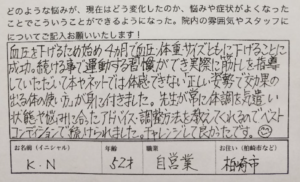 どのような悩みが、現在はどう変化したのか、悩みや症状がよくなった
ことでこういうことができるようになった。院内の雰囲気やスタッフに
についてご記入お願いします！
血圧を下げるため始め4ヵ月で血圧/体重・サイズともに下げることに
成功。続ける事で運動する習慣ができ実際に筋トレを指導
していただいて本やネットでは体感できない正しい姿勢で効果の
出る体の使い方が身に付きました。先生が常に体調を気遣い
状態や悩みに合ったアドバイス・調整方法を教えてくれるのでベスト
コンディションで続けられました。チャレンジして良かったです。
お名前（イニシャル） 年齢 職業 お住い（柏崎市など）
K・N 52才 自営業 柏崎市